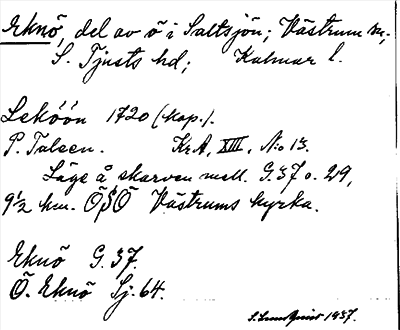 Eknö, del av ö i Saltsjön; Västrum sn;
S. Tjusts hd; Kalmar l.
Leköön 1720 (kop.).
P. Talsen. KrA, XIII, No 13.
Läge å skarven mell. G.37 o. 29,
9½ km. ÖSÖ Västrums kyrka.
Eknö G.37.
Ö. Eknö Sj.64.
S. Lundquist 1937.